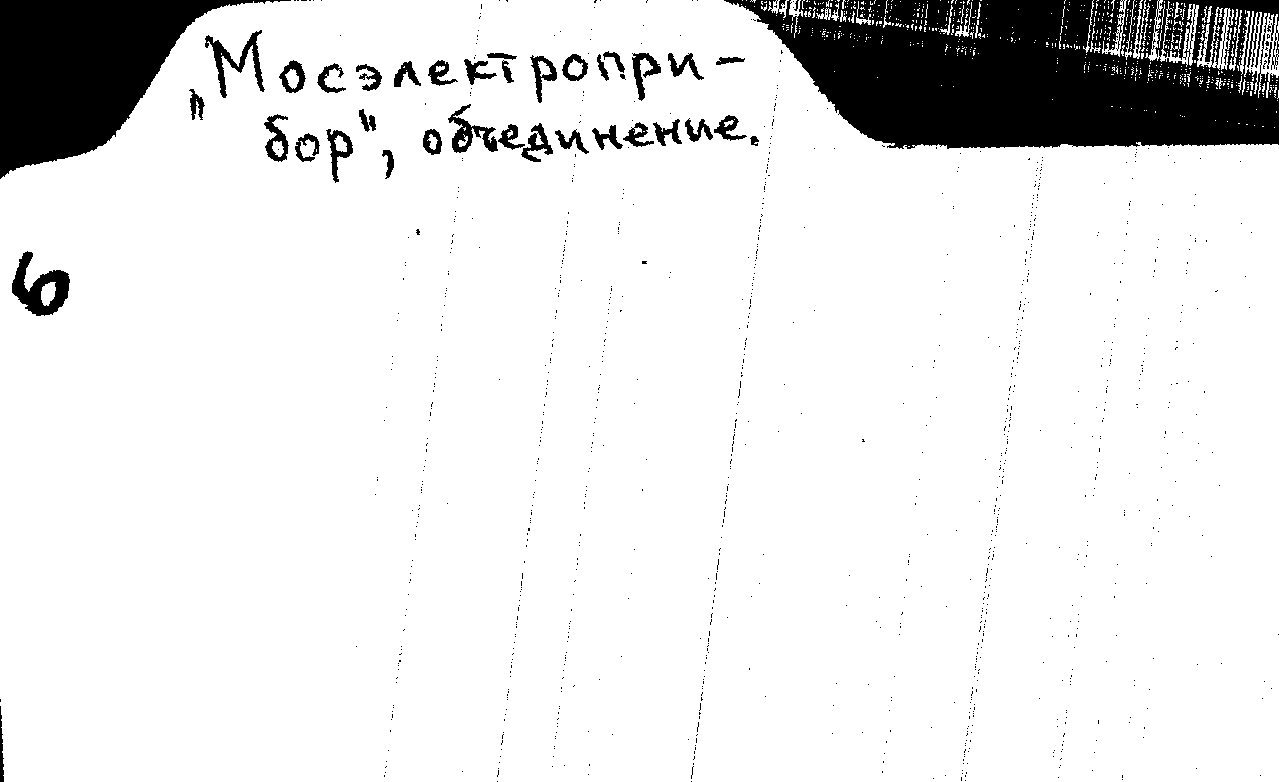 „Мосэлектропри-
бор", объединение.
6